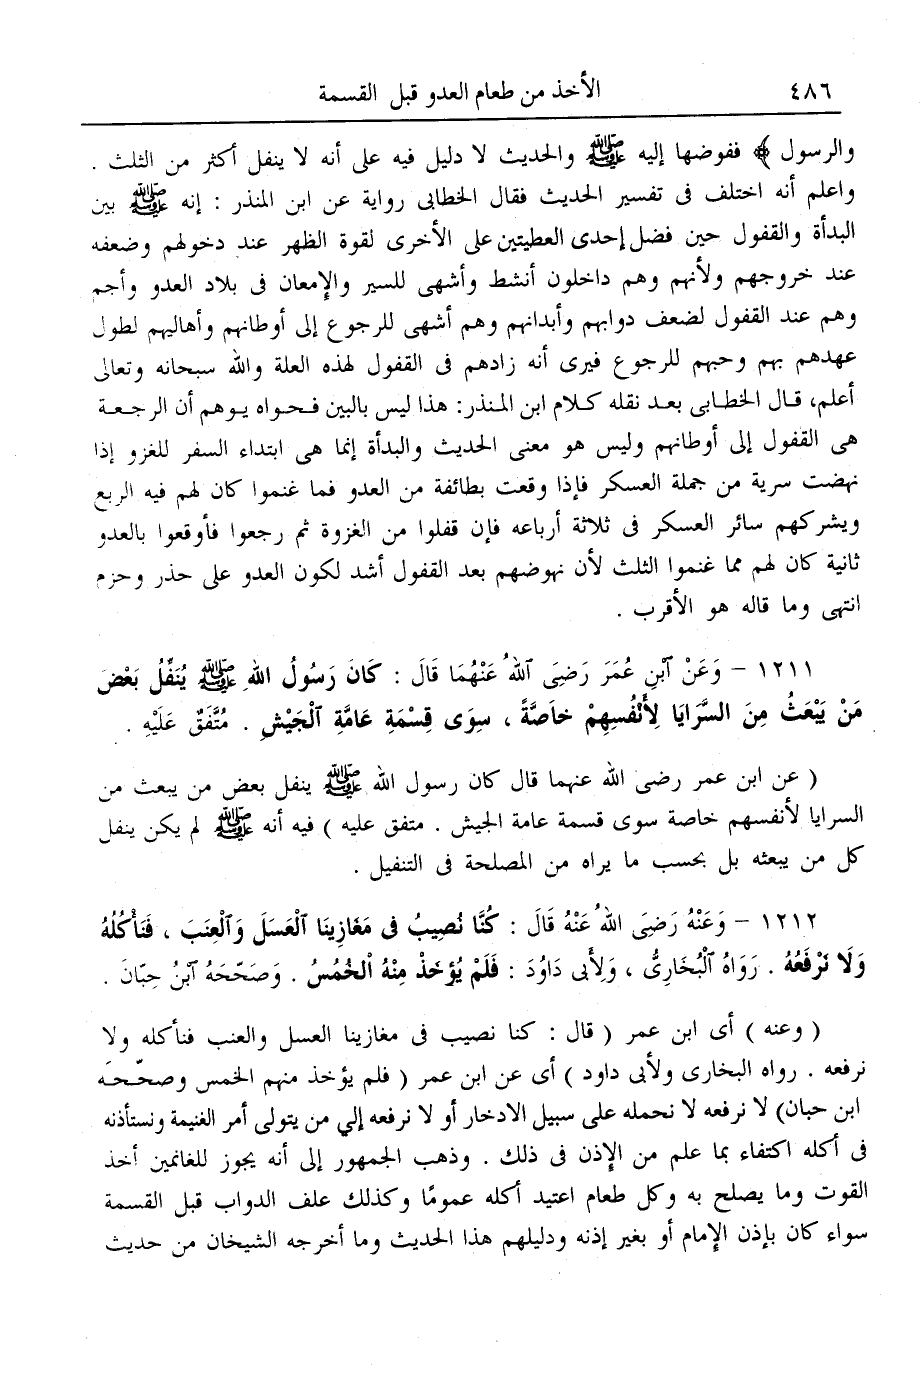 ٤٨٦ الأخذ من طعام العدو قبل القسمة
والرسول ﴾ ففوضها إليه ﷺ والحديث لا دليل فيه على أنه لا ينفل أكثر من الثلث .
واعلم أنه اختلف فى تفسير الحديث فقال الخطابى رواية عن ابن المنذر : إنه ﷺ بين
البدأة والقفول حين فضل إحدى العطيتين على الأخرى لقوة الظهر عند دخولهم وضعفه
عند خروجهم ولأنهم وهم داخلون أنشط وأشهى للسير والإمعان فى بلاد العدو وأجم
وهم عند القفول لضعف دوابهم وأبدانهم وهم أشهى للرجوع إلى أوطانهم وأهاليهم لطول
عهدهم بهم وحبهم للرجوع فيرى أنه زادهم فى القفول لهذه العلة والله سبحانه وتعالى
أعلم، قال الخطابى بعد نقله كلام ابن المنذر: هذا ليس بالبين فحواه يوهم أن الرجعة
هى القفول إلى أوطانهم وليس هو معنى الحديث والبدأة إنما هى ابتداء السفر للغزو إذا
نهضت سرية من جملة العسكر فإذا وقعت بطائفة من العدو فما غنموا كان لهم فيه الربع
ويشركهم سائر العسكر فى ثلاثة أرباعه فإن قفلوا من الغزوة ثم رجعوا فأوقعوا بالعدو
ثانية كان لهم مما غنموا الثلث لأن نهوضهم بعد القفول أشد لكون العدو على حذر وحزم
انتهى وما قاله هو الأقرب .
١٢١١ - وَعَنْ آبْنِ عُمَرَ رَضِىَ ٱللهُ عَنْهُمَا قَالَ : كَانَ رَسُولُ اللهِ ﷺ يُنَفِّلُ بَعْضَ
مَنْ يَبْعَثُ مِنَ السَّرَايَا لِأَنْفُسِهِمْ خَاصَّةً ، سِوَى قِسْمَةِ عَامَّةِ ٱلْجَيْشِ . مُتَّفَقٌ عَلَيْهِ .
( عن ابن عمر رضى الله عنهما قال كان رسول الله ﷺ ينفل بعض من يبعث من
السرايا لأنفسهم خاصة سوى قسمة عامة الجيش . متفق عليه ) فيه أنه ﷺ لم يكن ينفل
كل من يبعثه بل بحسب ما يراه من المصلحة فى التنفيل .
١٢١٢ - وَعَنْهُ رَضِىَ اللهُ عَنْهُ قَالَ : كُنَّا نُصِيبُ فِى مَغَازِينَا ٱلْعَسَلَ وَٱلْعِنَبَ ، فَنَأْكُلُهُ
وَلَا نَرْفَعُهُ . رَوَاهُ ٱلْبُخَارِىُّ ، وَلِأَبِى دَاوُدَ : فَلَمْ يُؤْخَذْ مِنْهُ ٱلْخُمُسُ . وَصَحَّحَهُ ٱبْنُ حِبَّانَ .
( وعنه ) أى ابن عمر ( قال : كنا نصيب فى مغازينا العسل والعنب فنأكله ولا
نرفعه . رواه البخارى ولأبى داود ) أى عن ابن عمر ( فلم يؤخذ منهم الخمس وصحّحه
ابن حبان) لا نرفعه لا نحمله على سبيل الادخار أو لا نرفعه إلي من يتولى أمر الغنيمة ونستأذنه
فى أكله اكتفاء بما علم من الإذن فى ذلك . وذهب الجمهور إلى أنه يجوز للغانمين أخذ
القوت وما يصلح به وكل طعام اعتيد أكله عمومًا وكذلك علف الدواب قبل القسمة
سواء كان بإذن الإمام أو بغير إذنه ودليلهم هذا الحديث وما أخرجه الشيخان من حديث